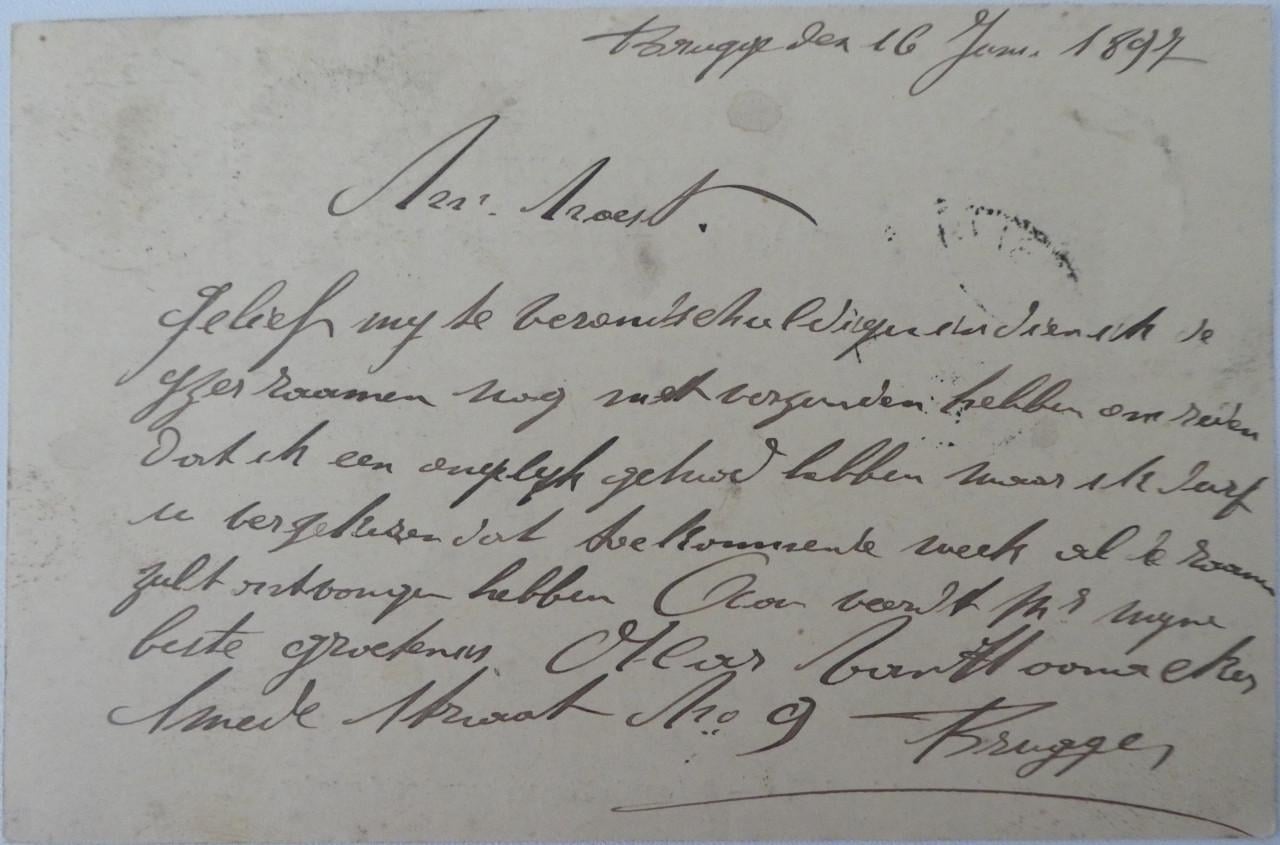 Brugge den 16 Juni 1897
Mr.
Gelief my te verontschuldigen indien ik de
yzer raamen nog niet verzonden hebben om reden
dat ik een ongelyk gehad hebben maar ik durf
u verzekeren dat toekomende week al de raamen
zult ontvangen hebben Aan Mr myne
beste groetenis Van
Smede Straat No 9 Brugge